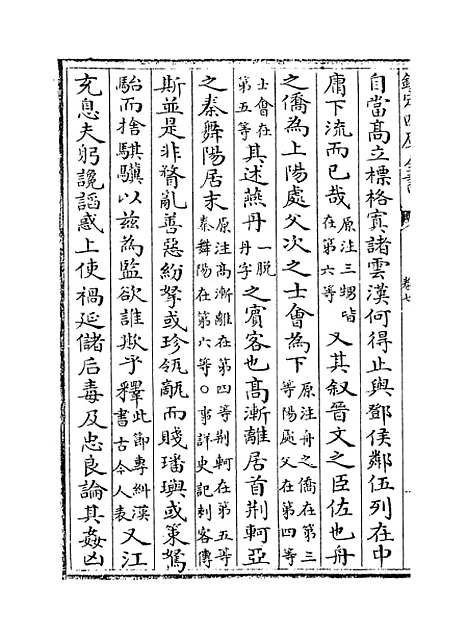 欽定四庫全書
卷七
自當髙立標格寘諸雲漢何得止與鄧侯鄰伍列在中
庸下流而已哉原注三甥皆在第六等又其叙晉文之臣佐也舟
之僑為上陽處父次之士會為下原注舟之僑在第三等陽處父在第四等
士會在第五等其述燕丹一脫丹字之賓客也髙漸離居首荆軻亞
之秦舞陽居末原注髙漸離在第四等荆軻在第五等秦舞陽在第六等○事詳史記刺客傳
斯並是非瞀亂善惡紛拏或珍瓴甋而賤璠璵或策駑
駘而捨騏驥以兹為監欲誰欺乎釋此節專糾漢書古今人表又江
充息夫躬讒諂惑上使禍延儲后毒及忠良論其姦凶